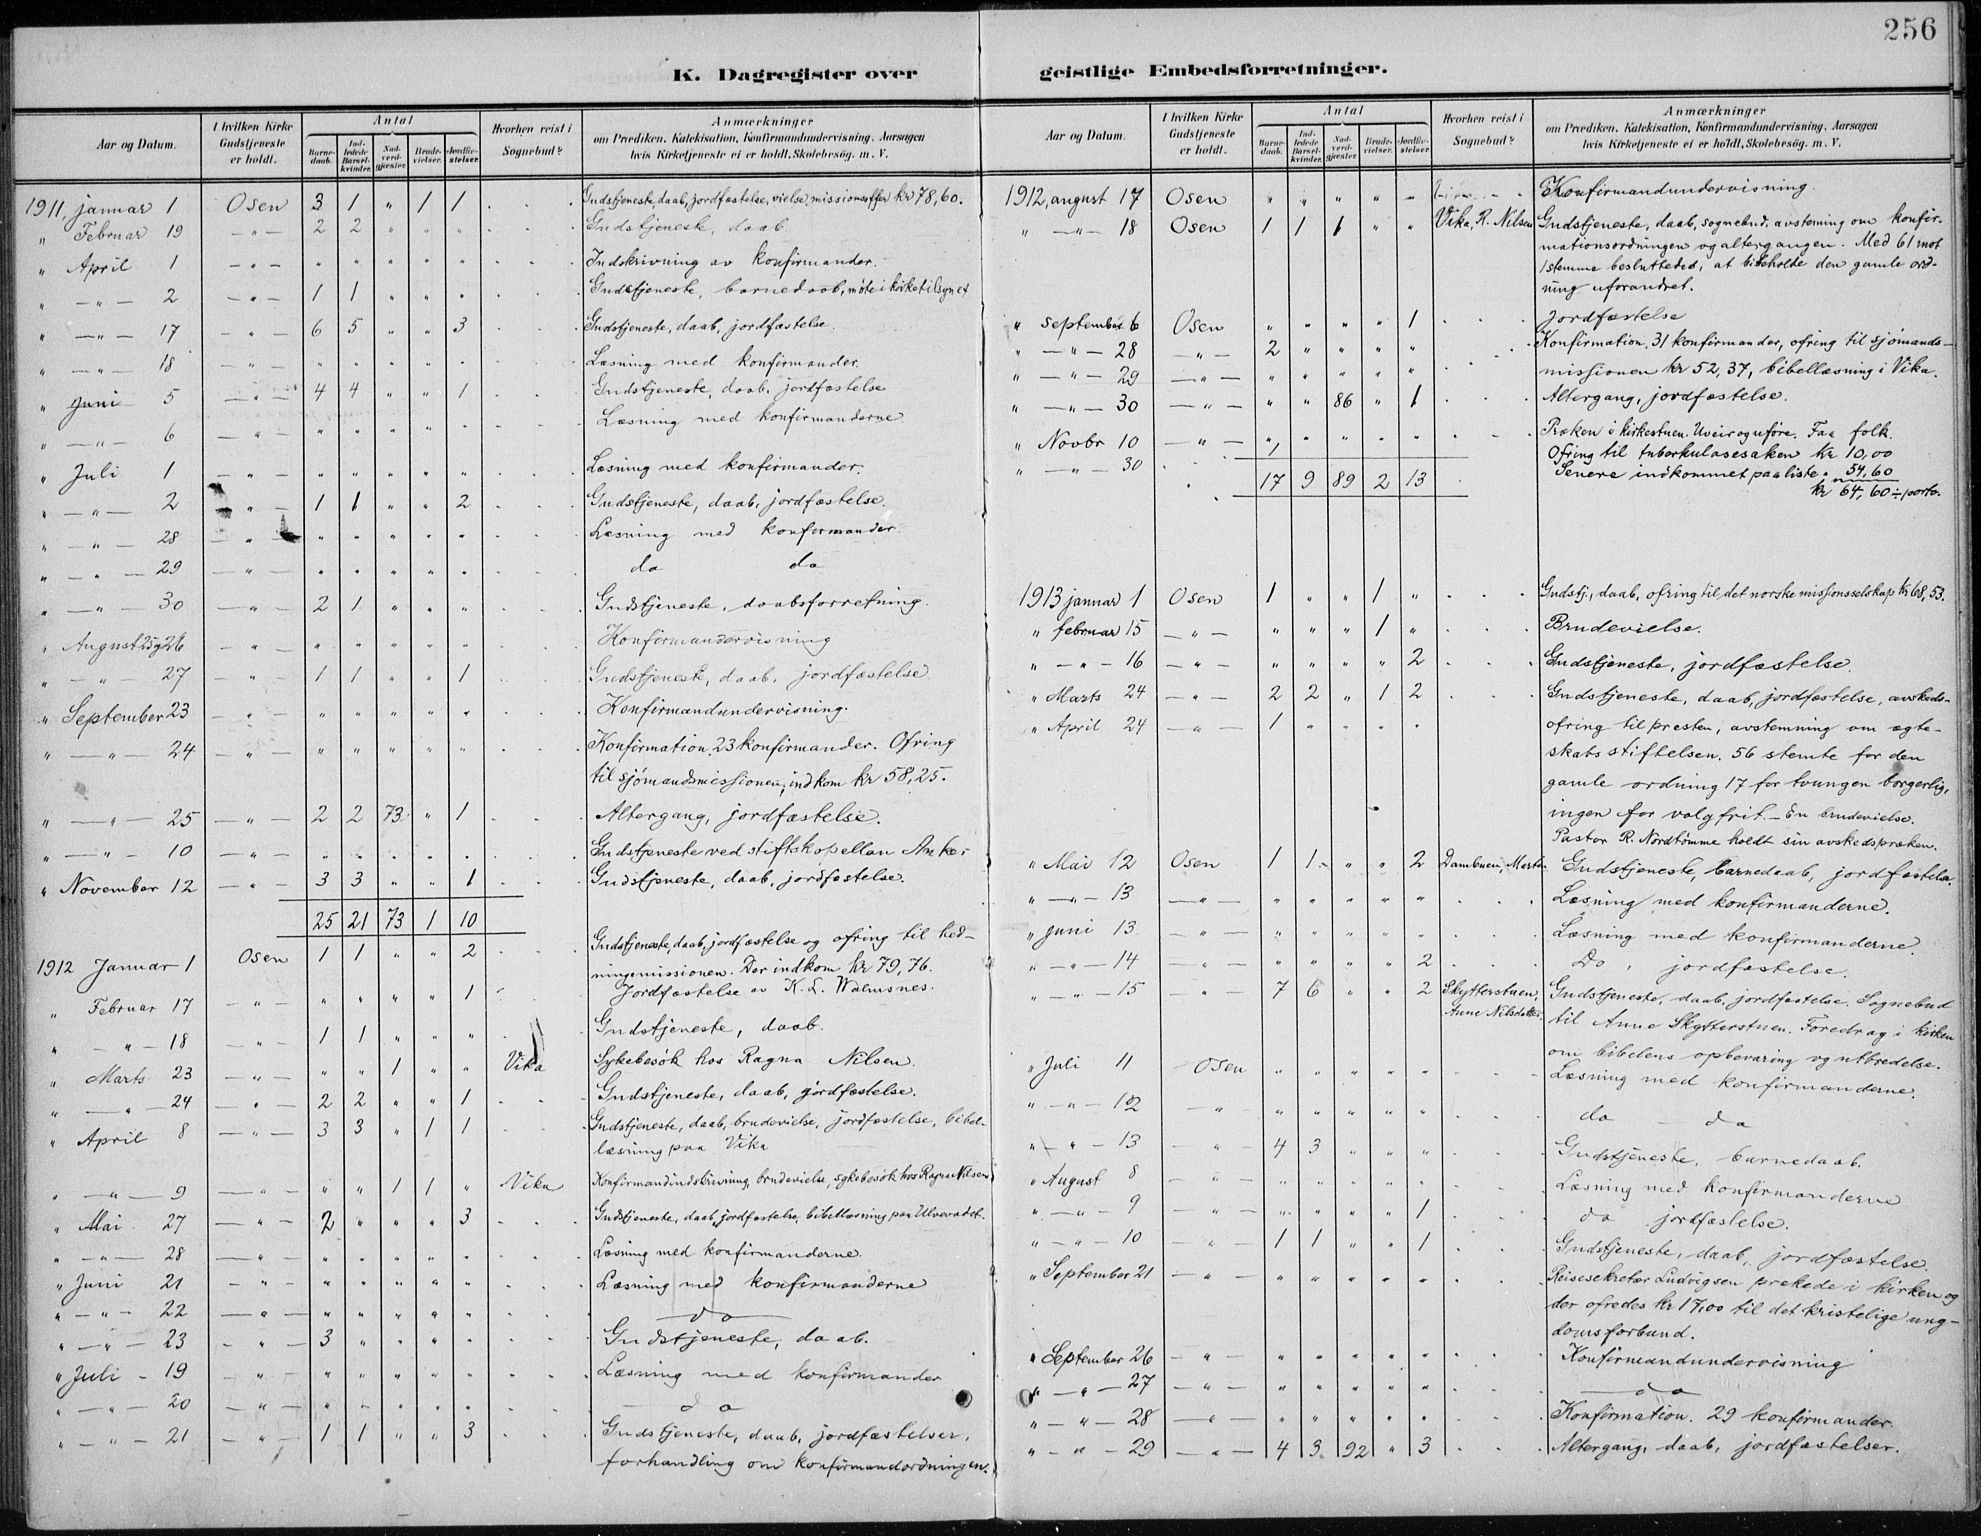 256
K. Dagregister over geistlige Embedsforretninger.
Aar og Datum. I hvilken Kirke Gudstjeneste er holdt. Antal Barnedaab. Indledede Barselkvinder. Nadverdgjester. Brudevielser. Jordfæstelser. Hvorhen reist i Sognebud? Anmærkninger om Prædiken, Katekisation, Konfirmandundervisning. Aarsagen hvis Kirketjeneste ei er holdt, Skolebesög. m. V.
1911, januar 1 Osen 3 1 " 1 1 . . . Gudstjeneste, daab, jordfæstelse, vielse, missionsoffer kr 78,60.
" Februar 19 — " — 2 2 " " " . . . Gudstjeneste, daab
" April 1 — " — " " " " " . . . Indskrivning av konfirmander.
" — " — 2 — " — 1 1 " " " . . . Gudstjeneste, barnedaab, møte i kirketilsynet
" — " — 17 — " — 6 5 " " 3 . . . Gudstjeneste, daab, jordfæstelse.
" — " — 18 — " — " " " " " . . . Læsning med konfirmander.
" Juni 5 — " — 4 4 " " 1 . . . Gudstjeneste, daab, jordfæstelse
" — " — 6 — " — " " " " " . . . Læsning med konfirmanderne
" Juli 1 — " — " " " " " . . . Læsning med konfirmander.
" — " — 2 " 1 1 " " 2 . . . Gudstjeneste, daab, jordfæstelse.
" — " — 28 — " — " " " " " . . . Læsning med konfirmander.
" — " — 29 — " — " " " " " . . . do do
" — " — 30 — " — 2 1 " " " . . . Gudstjeneste, daabsforretning.
" August 25 og 26 — " — " " " " " . . . Konfirmandervisning
" — " — 27 — " — 1 1 " " 1 . . . Gudstjeneste, daab, jordfæstelse
" September 23 — " — " " " " " . . . Konfirmandundervisning.
" — " — 24 " " " " " " . . . Konfirmation, 23 konfirmander. Ofring
til sjömandsmissionen, indkom kr 58,25.
" — " — 25 — " — 2 2 73 " 1 . . . Altergang, jordfæstelse.
" — " — 10 — " — " " " " " . . . Gudstjeneste ved stiftskapellan Anker
" November 12 — " — 3 3 " " 1 . . . Gudstjeneste, daab, jordfæstelse.
25 21 73 1 10
1912 Januar 1 Osen 1 1 " " 2 . . . Gudstjeneste, daab, jordfæstelse og ofring til hed-
ningemissionen. Der indkom kr 79,76.
" Februar 17 — " — " " " " 1 . . . Jordfæstelse av K. L. Walmsnes.
" — " — 18 — " — 1 1 " " " Gudstjeneste, daab.
" Marts 23 — " — " " 1 " " Vika Sykebesök hos Ragna Nilsen.
" — " — 24 — " — 2 2 " " 1 . . . Gudstjeneste, daab, jordfæstelse.
" April 8 — " — 3 3 " 1 1 . . . Gudstjeneste, daab, brudevielse, jordfæstelse, bibel-
læsning paa Vika
" — " — 9 — " — " " 1 1 " Vika Konfirmandindskrivning, brudevielse, sykebesök hos Ragna Nilsen
" Mai 27 — " — 2 " " " 3 . . . Gudstjeneste, daab, jordfæstelse, bibellæsning paa Ulvevadet.
" — " — 28 — " — " " " " " . . . Læsning med konfirmanderne.
" Juni 21 — " — " " " " " . . . Læsning med konfirmanderne
" — " — 22 — " — " " " " " . . . do
" — " — 23 — " — 3 " " " " . . . Gudstjeneste, daab.
" Juli - 19 — " — " " " " " . . . Læsning med konfirmander
" — " — 20 — " — " " " " " . . . do
" — " — 21 — " — 1 1 " " 3 . . . Gudstjeneste, daab, jordfæstelser,
forhandling om konfirmandordningen.
Aar og Datum. I hvilken Kirke Gudstjeneste er holdt. Antal Barnedaab. Indledede Barselkvinder. Nadverdgjester. Brudevielser. Jordfæstelser. Hvorhen reist i Sognebud? Anmærkninger om Prædiken, Katekisation, Konfirmandundervisning. Aarsagen hvis Kirketjeneste ei er holdt, Skolebesög. m. V.
1912, august 17 Osen " " " " " Konfirmandundervisning.
" — " — 18 Osen 1 1 1 " " Vika, R. Nilsen Gudstjeneste, daab, sognebud, avstemning om konfir-
mationsordningen og altergangen. Med 61 mot
1 stemme besluttedes, at bibeholde den gamle ord-
ning uforandret.
" september 6 Osen " " " " 1 . . . Jordfæstelse
" — " — 28 — " — 2 " " " " . . Konfirmation, 31 konfirmander, ofring til sjömands-
" — " — 29 — " — " " " " " . . missionen kr 52,37, bibellæsning i Vika.
" — " — 30 — " — " " 86 " 1 . . . Altergang, jordfæstelse.
" Novbr 10 — " — " " " " " . . . Præken i kirkestuen. Uveir og uføre. Faa folk.
" — " — 30 . Ofring til tuberkulosesaken kr 10,00
17 9 89 2 13 . Senere indkommet paa liste " 54,60
kr 64,60 ÷ porto.
1913 januar 1 Osen 1 " " 1 " . . . Gudstj., daab, ofring til det norske missionsselskap kr 68,53.
" februar 15 — " — " " " 1 " . . . Brudevielse.
" — " — 16 — " — " " " " 2 . . . Gudstjeneste, jordfæstelse
" Marts 24 — " — 2 2 " 1 2 . . . Gudstjeneste, daab, jordfæstelse, avskeds-
" April 24 — " — 1 " " " " ofring til presten, avstemning om ægte-
skabsstiftelsen. 56 stemte for den
gamle ordning 17 for tvungen borgerlig,
ingen for valgfrit. — En brudevielse.
Pastor R. Nordtømme holdt sin avskedspræken.
" Mai 12 Osen 1 1 " " 2 Dambuen, Marta Gudstjeneste, barnedaab, jordfæstelse.
" — " — 13 — " — " " " " " . . . Læsning med konfirmanderne.
" Juni 13 — " — " " " " " . . . Læsning med konfirmanderne.
" — " — 14 — " — " " " " 2 . . . Do, jordfæstelse.
" — " — 15 — " — 7 6 " " 2 Skytterstuen, Gudstjeneste, daab, jordfæstelse, Sognebud
Anne Nilsdatter. til Anne Skytterstuen. Foredrag i kirken
om bibelens opbevaring og utbredelse.
" Juli 11 Osen " " " " " . . . Læsning med konfirmanderne.
" — " — 12 — " — " " " " " . . . do — do
" — " — 13 — " — 4 3 " " " . . . Gudstjeneste, barnedaab.
" August 8 — " — " " " " " . . . Læsning med konfirmanderne
" — " — 9 — " — " " " " 1 . . . do jordfæstelse.
" — " — 10 — " — 1 1 " " 1 . . . Gudstjeneste, daab, jordfæstelse.
" September 21 — " — " " " " " . . . Reisesekretær Ludvigsen prækede i kirken og
der ofredes kr 17,00 til det kristelige ung-
domsforbund.
" September 26 — " — " " " " " . . . Konfirmandundervisning
" — " — 27 — " — " " " " " . . . do
" — " — 28 — " — " " " " " . . . Konfirmation. 29 konfirmander
" — " — 29 — " — 4 3 92 " 3 . . . Altergang, daab, jordfæstelser.